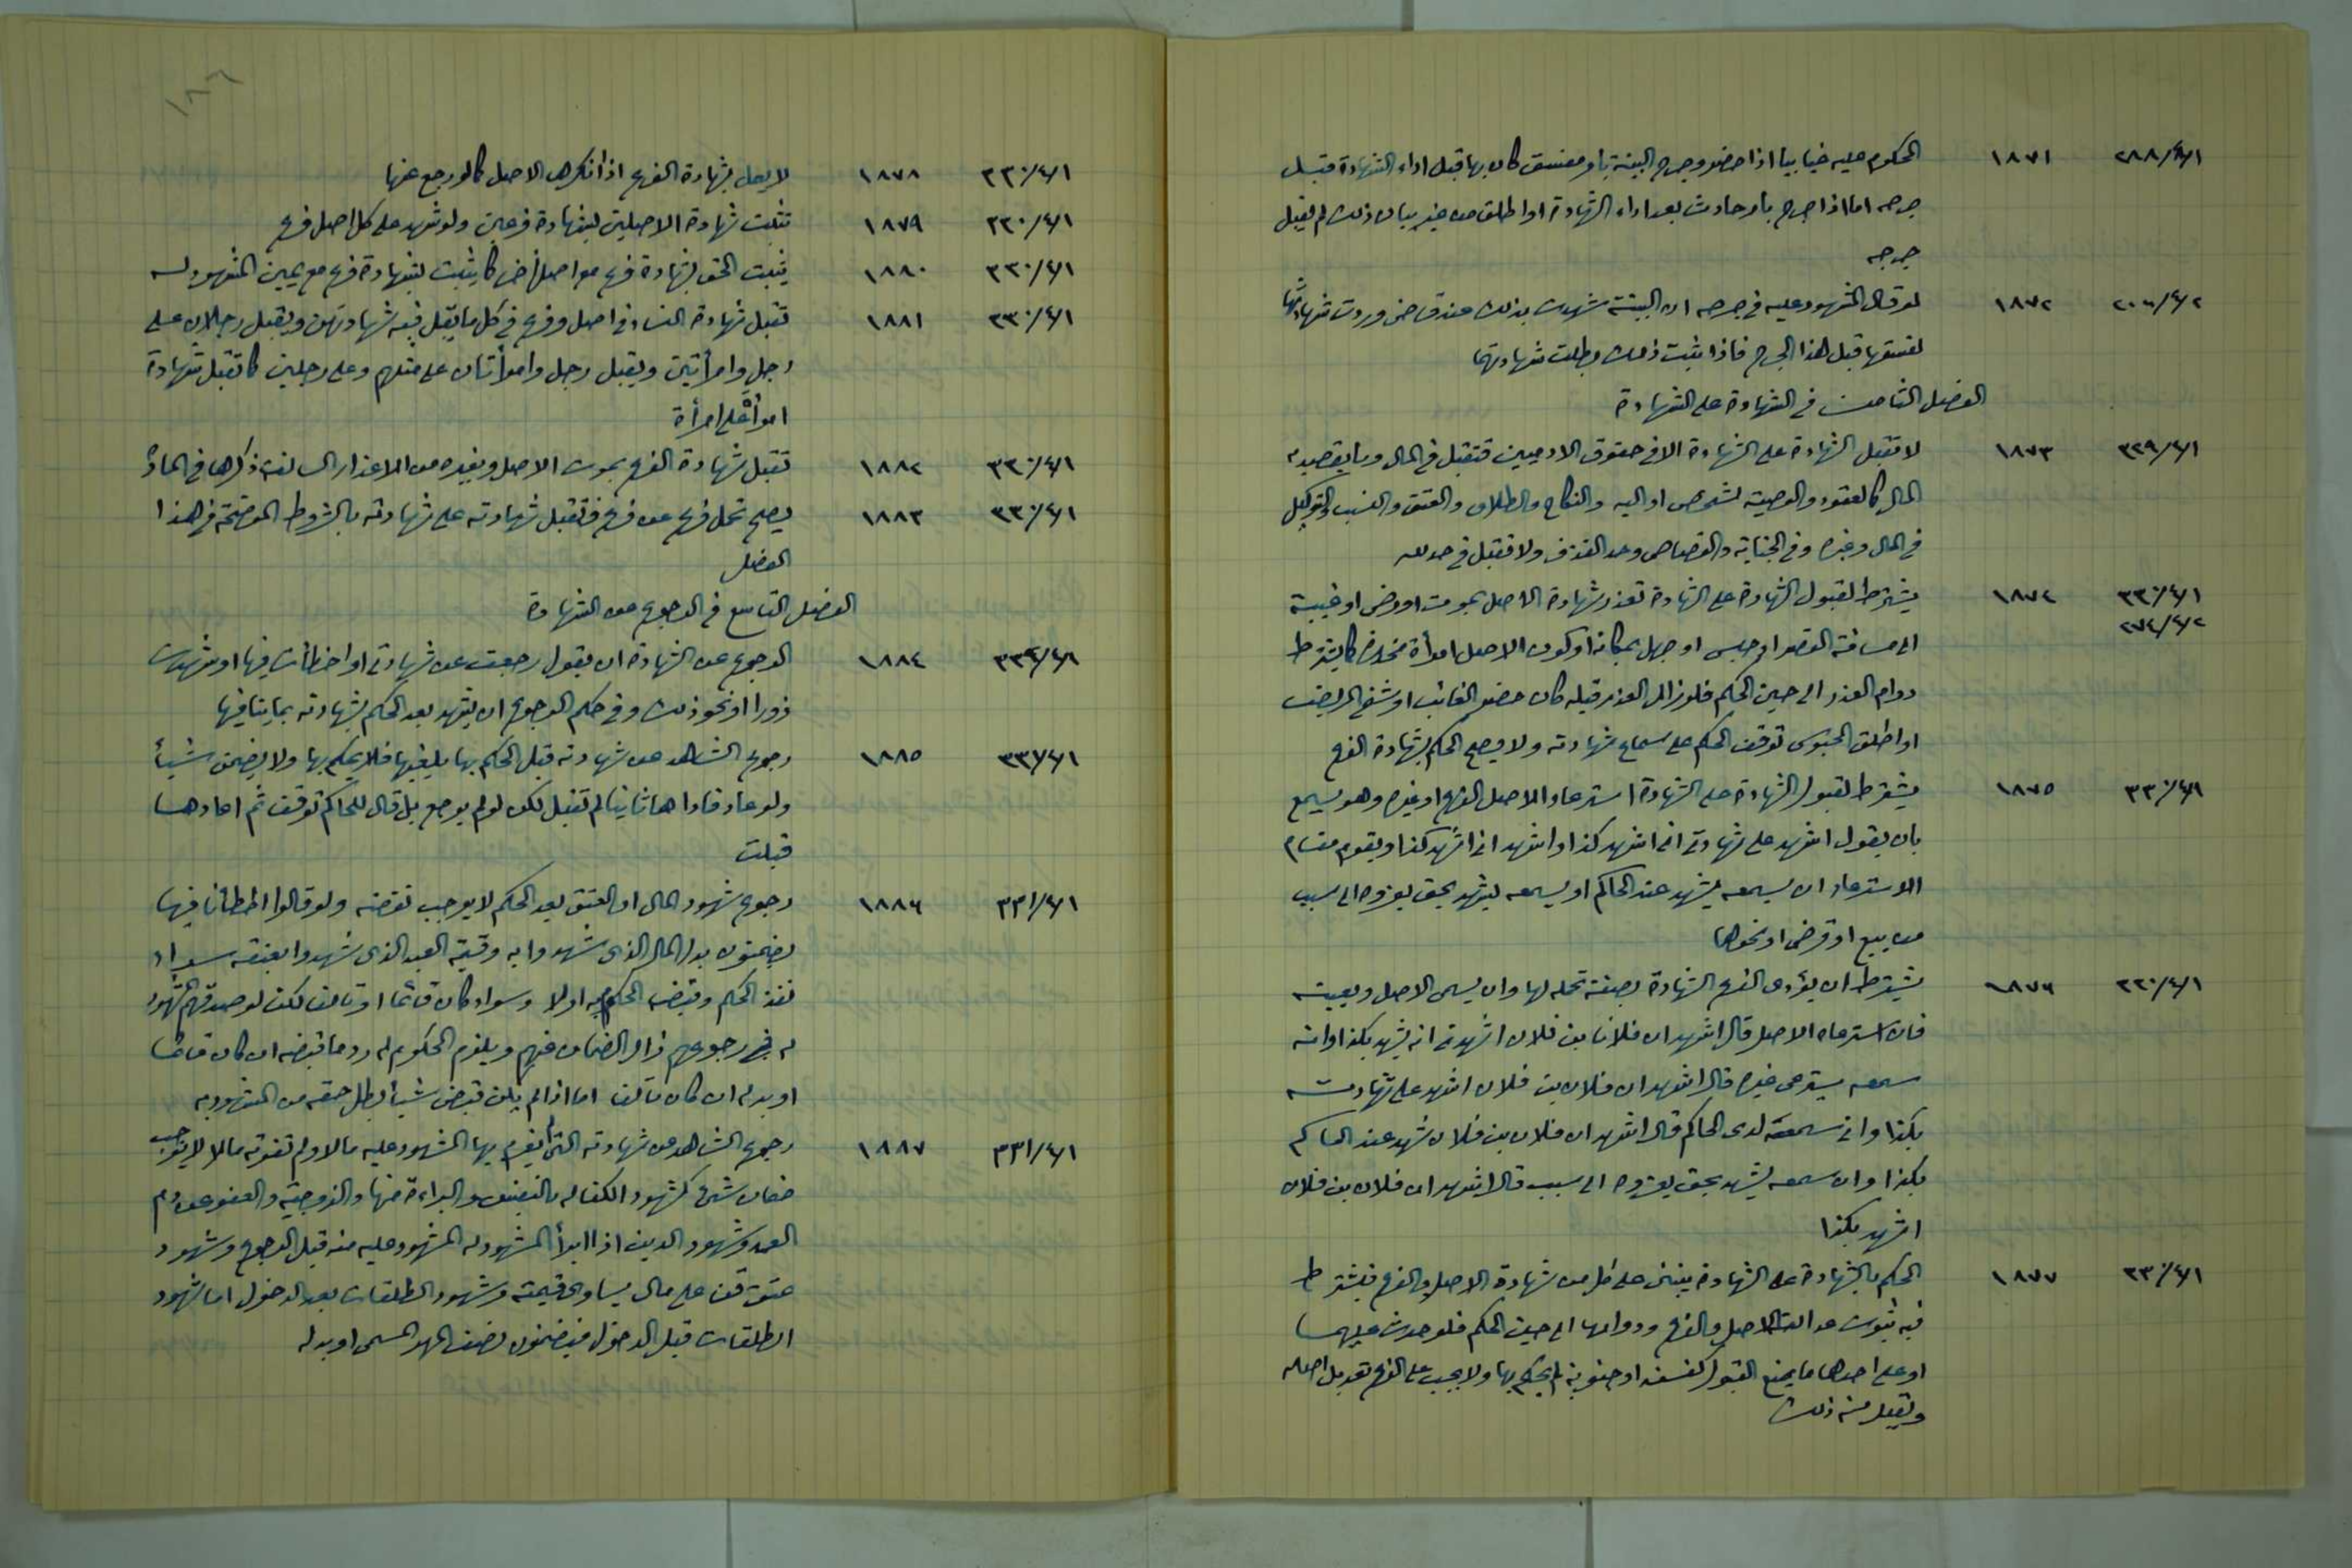 ٢٨٨/٤/١ ١٨٧١ المحكوم عليه غيابيا اذا حضر وجرح البينة بامر مفسق كان بها قبل اداء الشهادة قبل
جرحه اما اذا جرح بأمر حادث بعد اداء الشهادة او اطلق من غير بيان ذلك لم يقبل
جرحه
٢٠٦/٤/٢ ١٨٧٢ لو قال المشهود عليه في جرحه ان البينة شهدت بذلك عند قاض وردت شهادتها
لفسقها قبل هذا الجرح فاذا ثبت ذلك بطلت شهادتها
الفصل الثامن في الشهادة على الشهادة
٣٢٩/٤/١ ١٨٧٣ لا تقبل الشهادة على الشهادة الا في حقوق الادميين فتقبل في المال وما يقصد به
المال كالعقود والوصية لشخص او اليه والنكاح والطلاق والعتق والنسب والتوكيل
في المال وغيره وفي الجناية والقصاص وحد القذف ولا تقبل في حد لله
٣٣٠/٤/١ ١٨٧٤ يشترط لقبول الشهادة على الشهادة تعذر شهادة الاصل بموت او مرض او غيبة
٢٧٤/٤/٢ الى مسافة القصر او حبس او جهل بمكانه او كون الاصل امرأة مخدرة كما يشترط
دوام العذر الى حين الحكم فلو زال العذر قبله كان حضر الغائب او شفي المريض
او اطلق المحبوس توقف الحكم على سماع شهادته ولا يصح الحكم بشهادة الفرع
٣٣٠/٤/١ ١٨٧٥ يشترط لقبول الشهادة على الشهادة استرعاء الاصل الفرع او غيره وهو يسمع
بان يقول اشهد على شهادتي اني اشهد كذا او اشهد اني اشهد كذا ويقوم مقام
الاسترعاء ان يسمعه يشهد عند الحاكم او يسمعه يشهد بحق يعزوه الى سبب
من بيع او قرض او نحوها
٢٢٠/٤/١ ١٨٧٦ يشترط ان يؤدي الفرع الشهادة بصفة تحمله لها وان يسمي الاصل ويعينه
فان استرعاه الاصل قال اشهد ان فلانا بن فلان اشهدني انه يشهد بكذا وانه
سمعه يسترعي غيره قال اشهد ان فلان بن فلان اشهد على شهادته
بكذا وان سمعه لدى الحاكم قال اشهد ان فلان بن فلان شهد عند الحاكم
بكذا وان سمعه يشهد بحق يعزوه الى سبب قال اشهد ان فلان بن فلان
اشهد بكذا
٣٣٠/٤/١ ١٨٧٧ الحكم بالشهادة على الشهادة ينبني على كل من شهادة الاصل والفرع فيشترط
فيه ثبوت عدالة الاصل والفرع ودوامها الى حين الحكم فلو حدث عليهما
او على احدهما ما يمنع القبول كفسق او جنون لم يحكم بها ولا يجب على الفرع تعديل اصله
ويقبل منه ذلك
١٨٦
٣٣٠/٤/١ ١٨٧٨ لا يعمل بشهادة الفرع اذا انكرها الاصل كما لو رجع عنها
٢٣٠/٤/١ ١٨٧٩ تثبت شهادة الاصلين بشهادة فرعين ولو شهد على كل اصل فرع
٣٣٠/٤/١ ١٨٨٠ يثبت الحق بشهادة فرع مع اصل اخر كما يثبت بشهادة فرع مع يمين المشهود له
٣٣٠/٤/١ ١٨٨١ تقبل شهادة النساء في اصل وفرع في كل ما يقبل فيه شهادتهن ويقبل رجلان على
رجل وامرأتين ويقبل رجل وامرأتان على مثلهم وعلى رجلين كما تقبل شهادة
امرأة على امرأة
٣٣٠/٤/١ ١٨٨٢ تقبل شهادة الفرع بموت الاصل وبغيره من الاعذار السالفة ذكرها في المادة
٣٣٠/٤/١ ١٨٨٣ يصح تحمل فرع عن فرع فتقبل شهادته على شهادته بالشروط الموضحة في هذا
الفصل
الفصل التاسع في الرجوع عن الشهادة
٣٣٤/٤/١ ١٨٨٤ الرجوع عن الشهادة ان يقول رجعت عن شهادتي او اخطأت فيها او شهدت
زورا او نحو ذلك وفي حكم الرجوع ان يشهد بعد الحكم بشهادته بما ينافيها
٣٣١/٤/١ ١٨٨٥ رجوع الشاهد عن شهادته قبل الحكم بها يلغيها فلا يحكم بها ولا يضمن شيئا
ولو عاد فاداها ثانيا لم تقبل لكن لو لم يرجع بل قال للحاكم توقف ثم اعادها
قبلت
٣٣١/٤/١ ١٨٨٦ رجوع شهود المال او العتق بعد الحكم لا يوجب نقضه ولو قالوا اخطأنا فيها
يضمنون بدل المال الذي شهدوا به وقيمة العبد الذي شهدوا بعتقه سواء
نفذ الحكم وقبض المحكوم به اولا وسواء كان قائما او تالفا لكن لو صدقهم المشهود
له في رجوعهم زال الضمان عنهم ويلزم المحكوم له رد ما قبضه ان كان قائما
او بدله ان كان تالفا اما اذا لم يكن قبض شيئا بطل حقه من المشهود به
٣٣١/٤/١ ١٨٨٧ رجوع الشاهد عن شهادته التي لم يغرم بها المشهود عليه مالا ولم تفوته مالا لا يوجب
ضمان شئ كشهود الكفالة بالنفس والبراءة منها والزوجية والعفو عن دم
العمد وشهود الدين اذا ابرأ المشهود له المشهود عليه منه قبل الرجوع وشهود
عتق قن على مال يساوي قيمته وشهود الطلقات بعد الدخول اما شهود
الطلقات قبل الدخول فيضمنون نصف المهر المسمى او بدله